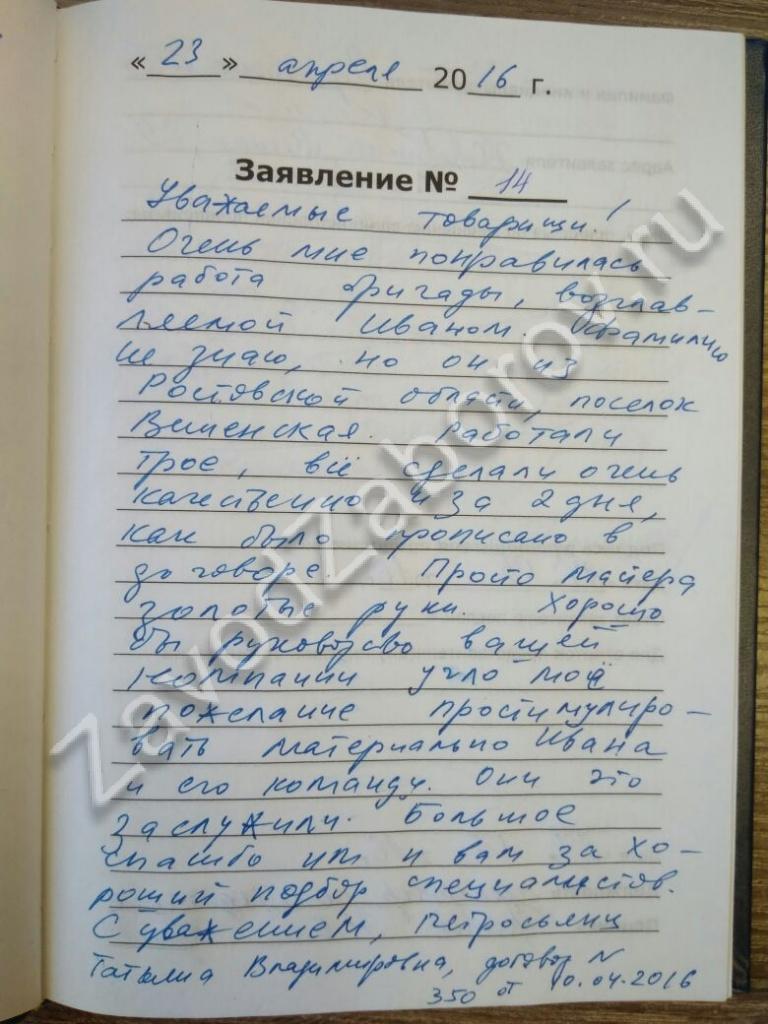 « 23 » апреля 2016 г.
Заявление № 14
Уважаемые товарищи!
Очень мне понравилась
работа бригады, возглав-
ляемой Иваном. Фамилию
не знаю, но он из
Ростовской области, поселок
Вешенская. Работали
трое, всё сделали очень
качественно и за 2 дня,
как было прописано в
договоре. Просто мастера
золотые руки. Хорошо
бы руководство вашей
компании учло моё
пожелание простимулиро-
вать материально Ивана
и его команду. Они это
заслужили. Большое
спасибо им и вам за хо-
роший подбор специалистов.
С уважением, Петросьянц
Татьяна Владимировна, договор N
350 от 10.04.2016
ZavodZaborov.ru